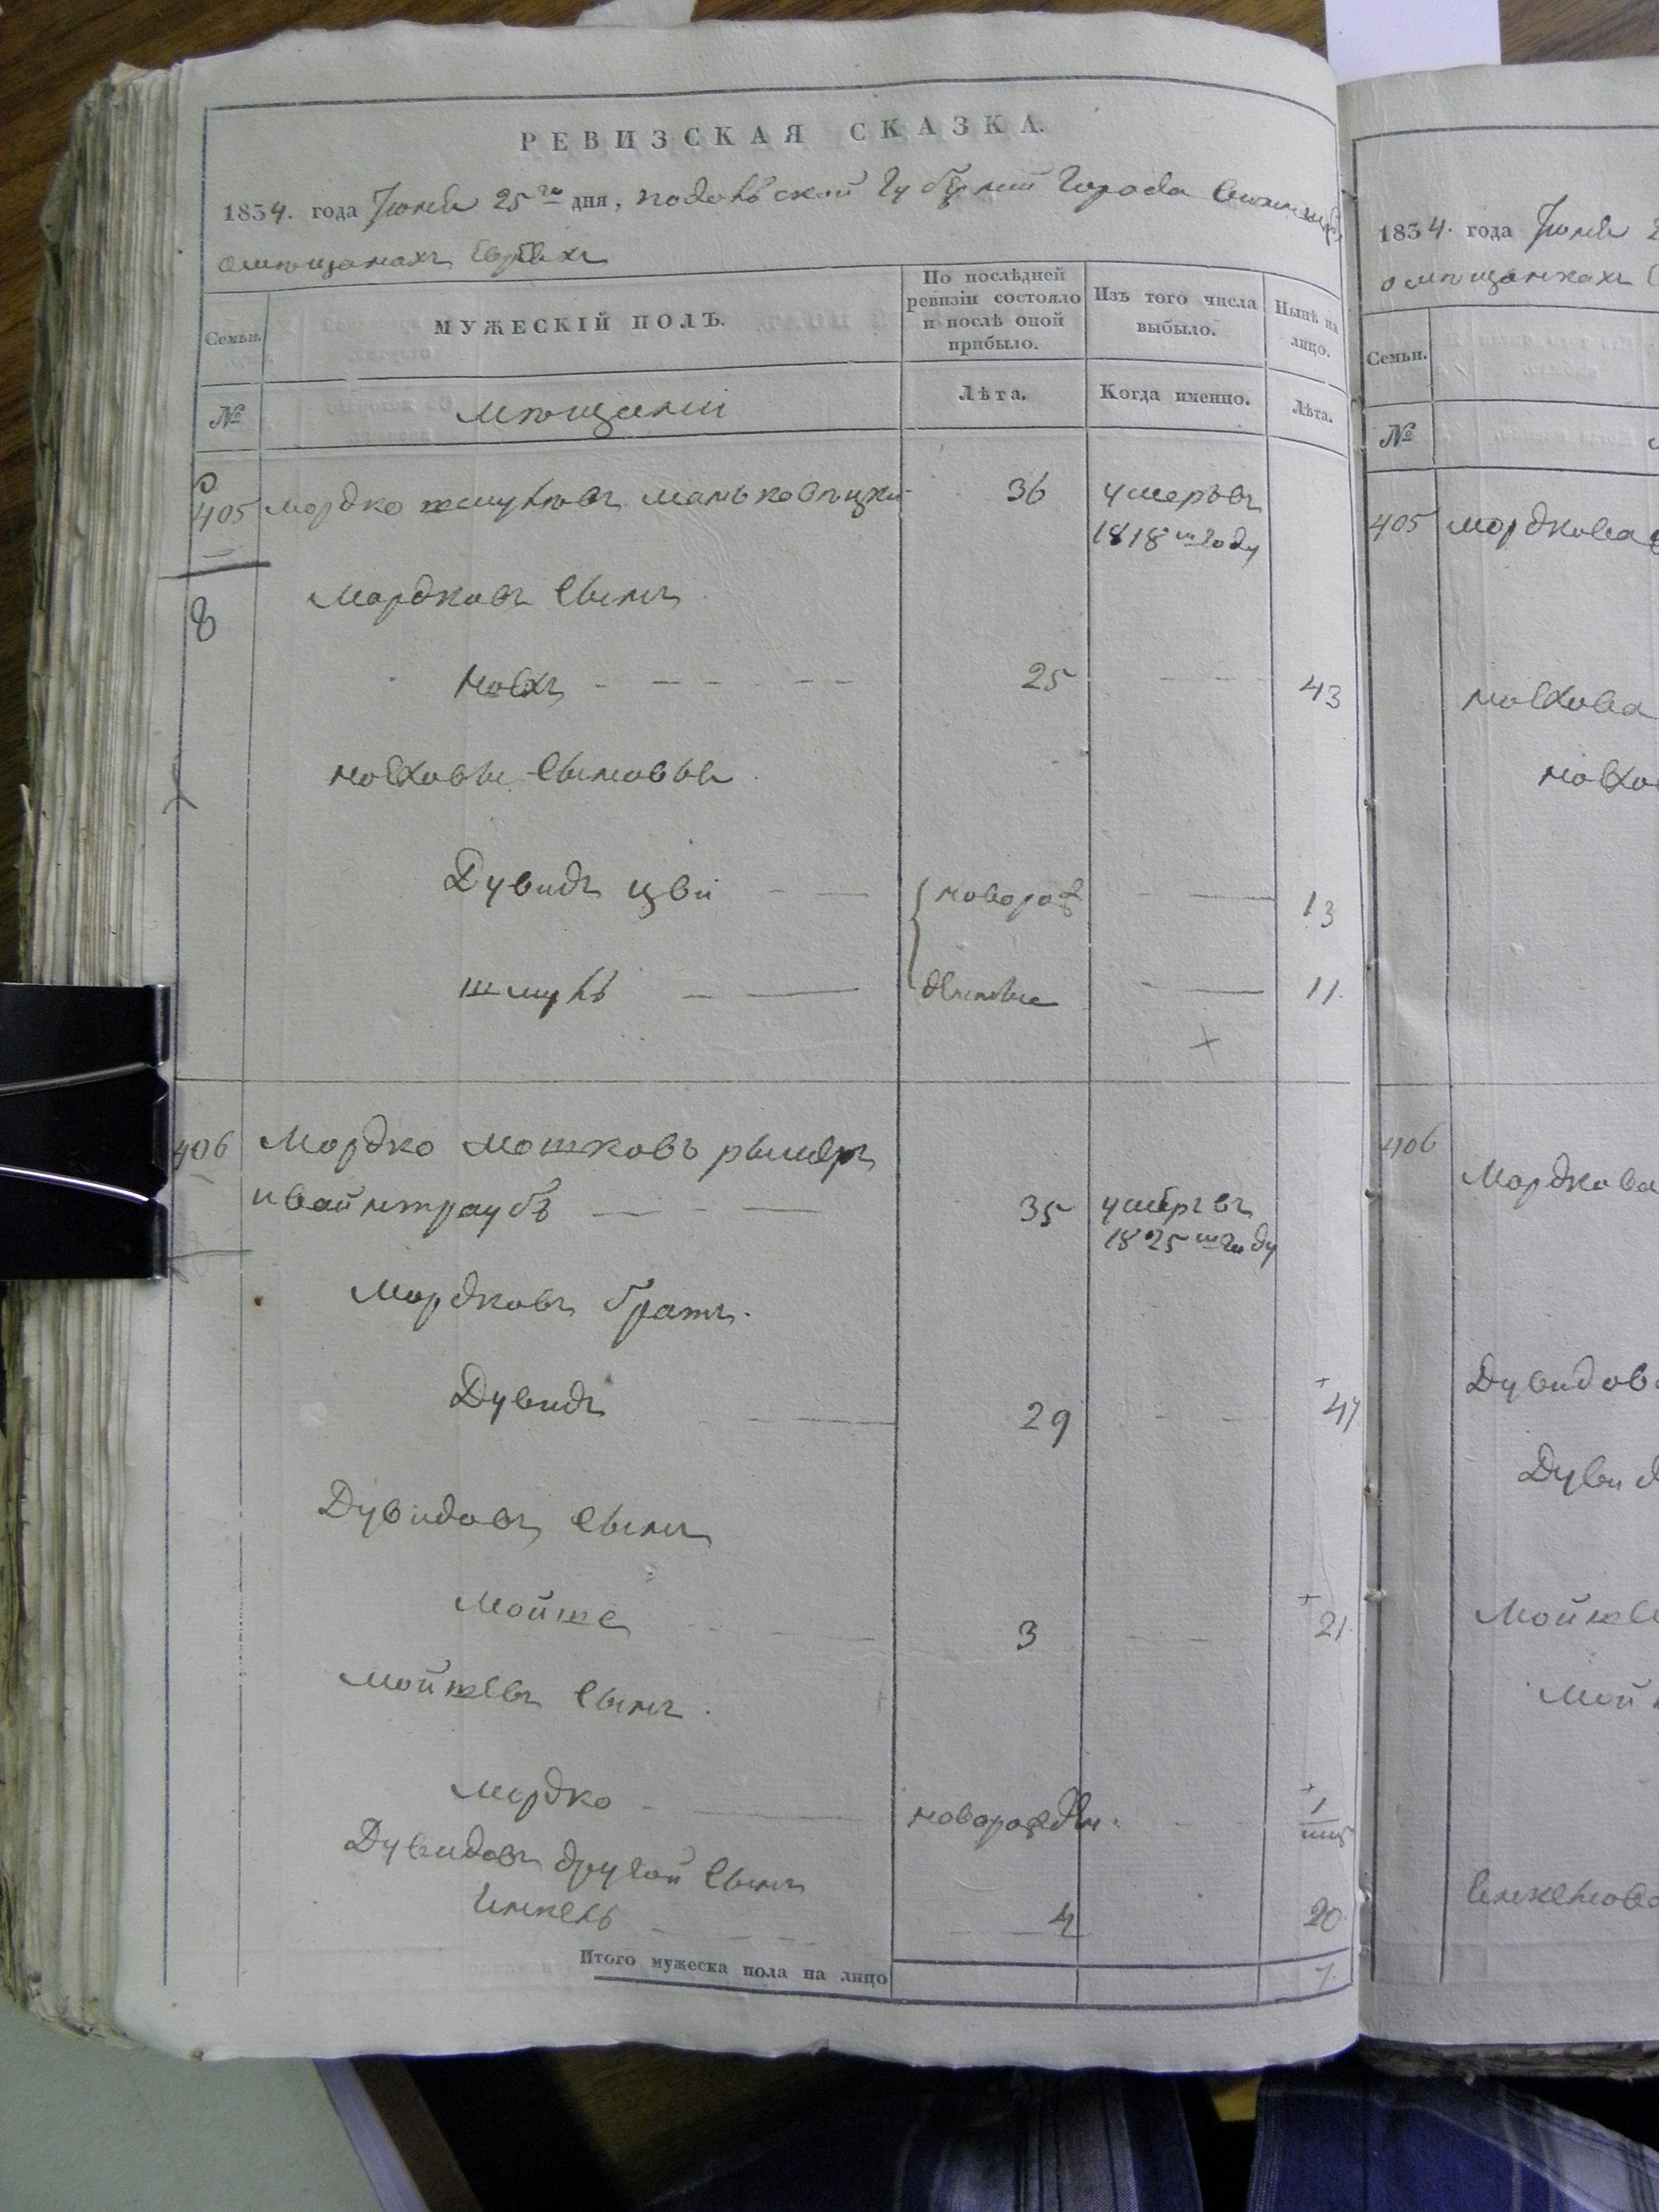 РЕВИЗСКАЯ СКАЗКА.
1834. года Июня 25го дня, подольской губерніи города
о мѣщанахъ Евреяхъ
Семьи.
МУЖЕСКІЙ ПОЛЪ.
По послѣдней ревизіи состояло и послѣ оной прибыло.
Изъ того числа выбыло.
Нынѣ на лицо.
№
мѣщани
Лѣта.
Когда именно.
Лѣта.
405 мордко шмулевъ маньковецкй 36 умеръ въ
1818м году
8
Мордковъ сынъ
новхъ 25 43
новховы сыновья
Дувидъ цви новорож 13
шмуль денные 11.
406 Мордко мошковъ рымеръ
и вайнтраубъ 35 умеръ въ
1825м году
Мордковъ братъ.
Дувидъ 29 47
Дувидовъ сынъ
Мойше 3 21.
мойшевъ сынъ.
мордко новорожден. 1
Дувидовъ другой сынъ
Инкель 4 20.
Итого мужеска пола на лицо 7.
1834. года Июня 2
о мѣщанкахъ
Семьи.
№
405 мордкова
новхова
новхо
406
Мордкова
Дувидов
Дуви
Мойше
Мой
Инкелева